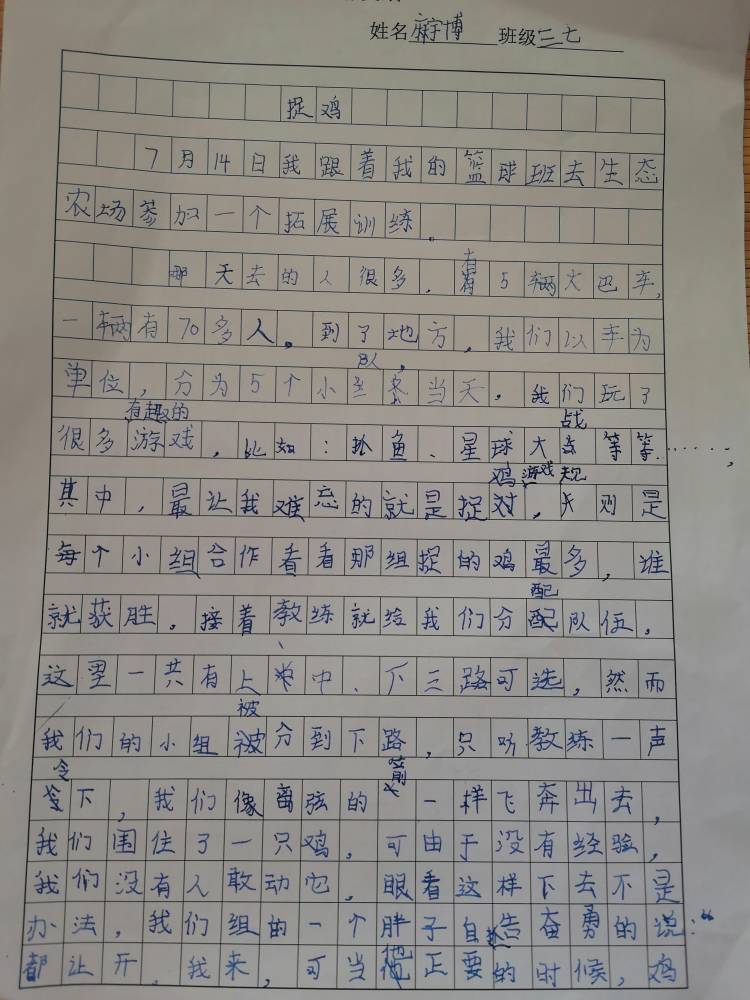 姓名 宇博 班级三七
捉鸡
7月14日我跟着我的篮球班去生态
农场参加一个拓展训练。
那天去的人很多,有5辆大巴车,
一辆有70多人。到了地方,我们以车为
单位,分为5个小队,当天,我们玩了
很多有趣的游戏,比如:趴鱼、星球大战等等……,
其中,最让我难忘的就是捉鸡,游戏规则是
每个小组合作看看那组捉的鸡最多,谁
就获胜。接着教练就给我们分配队伍,
这里一共有上、中、下三路可选,然而
我们的小组被分到下路,只听教练一声
令下,我们像离弦的箭一样飞奔出去,
我们围住了一只鸡,可由于没有经验,
我们没有人敢动它,眼看这样下去不是
办法,我们组的一个胖子自告奋勇的说:“
都让开,我来,可当他正要的时候,鸡